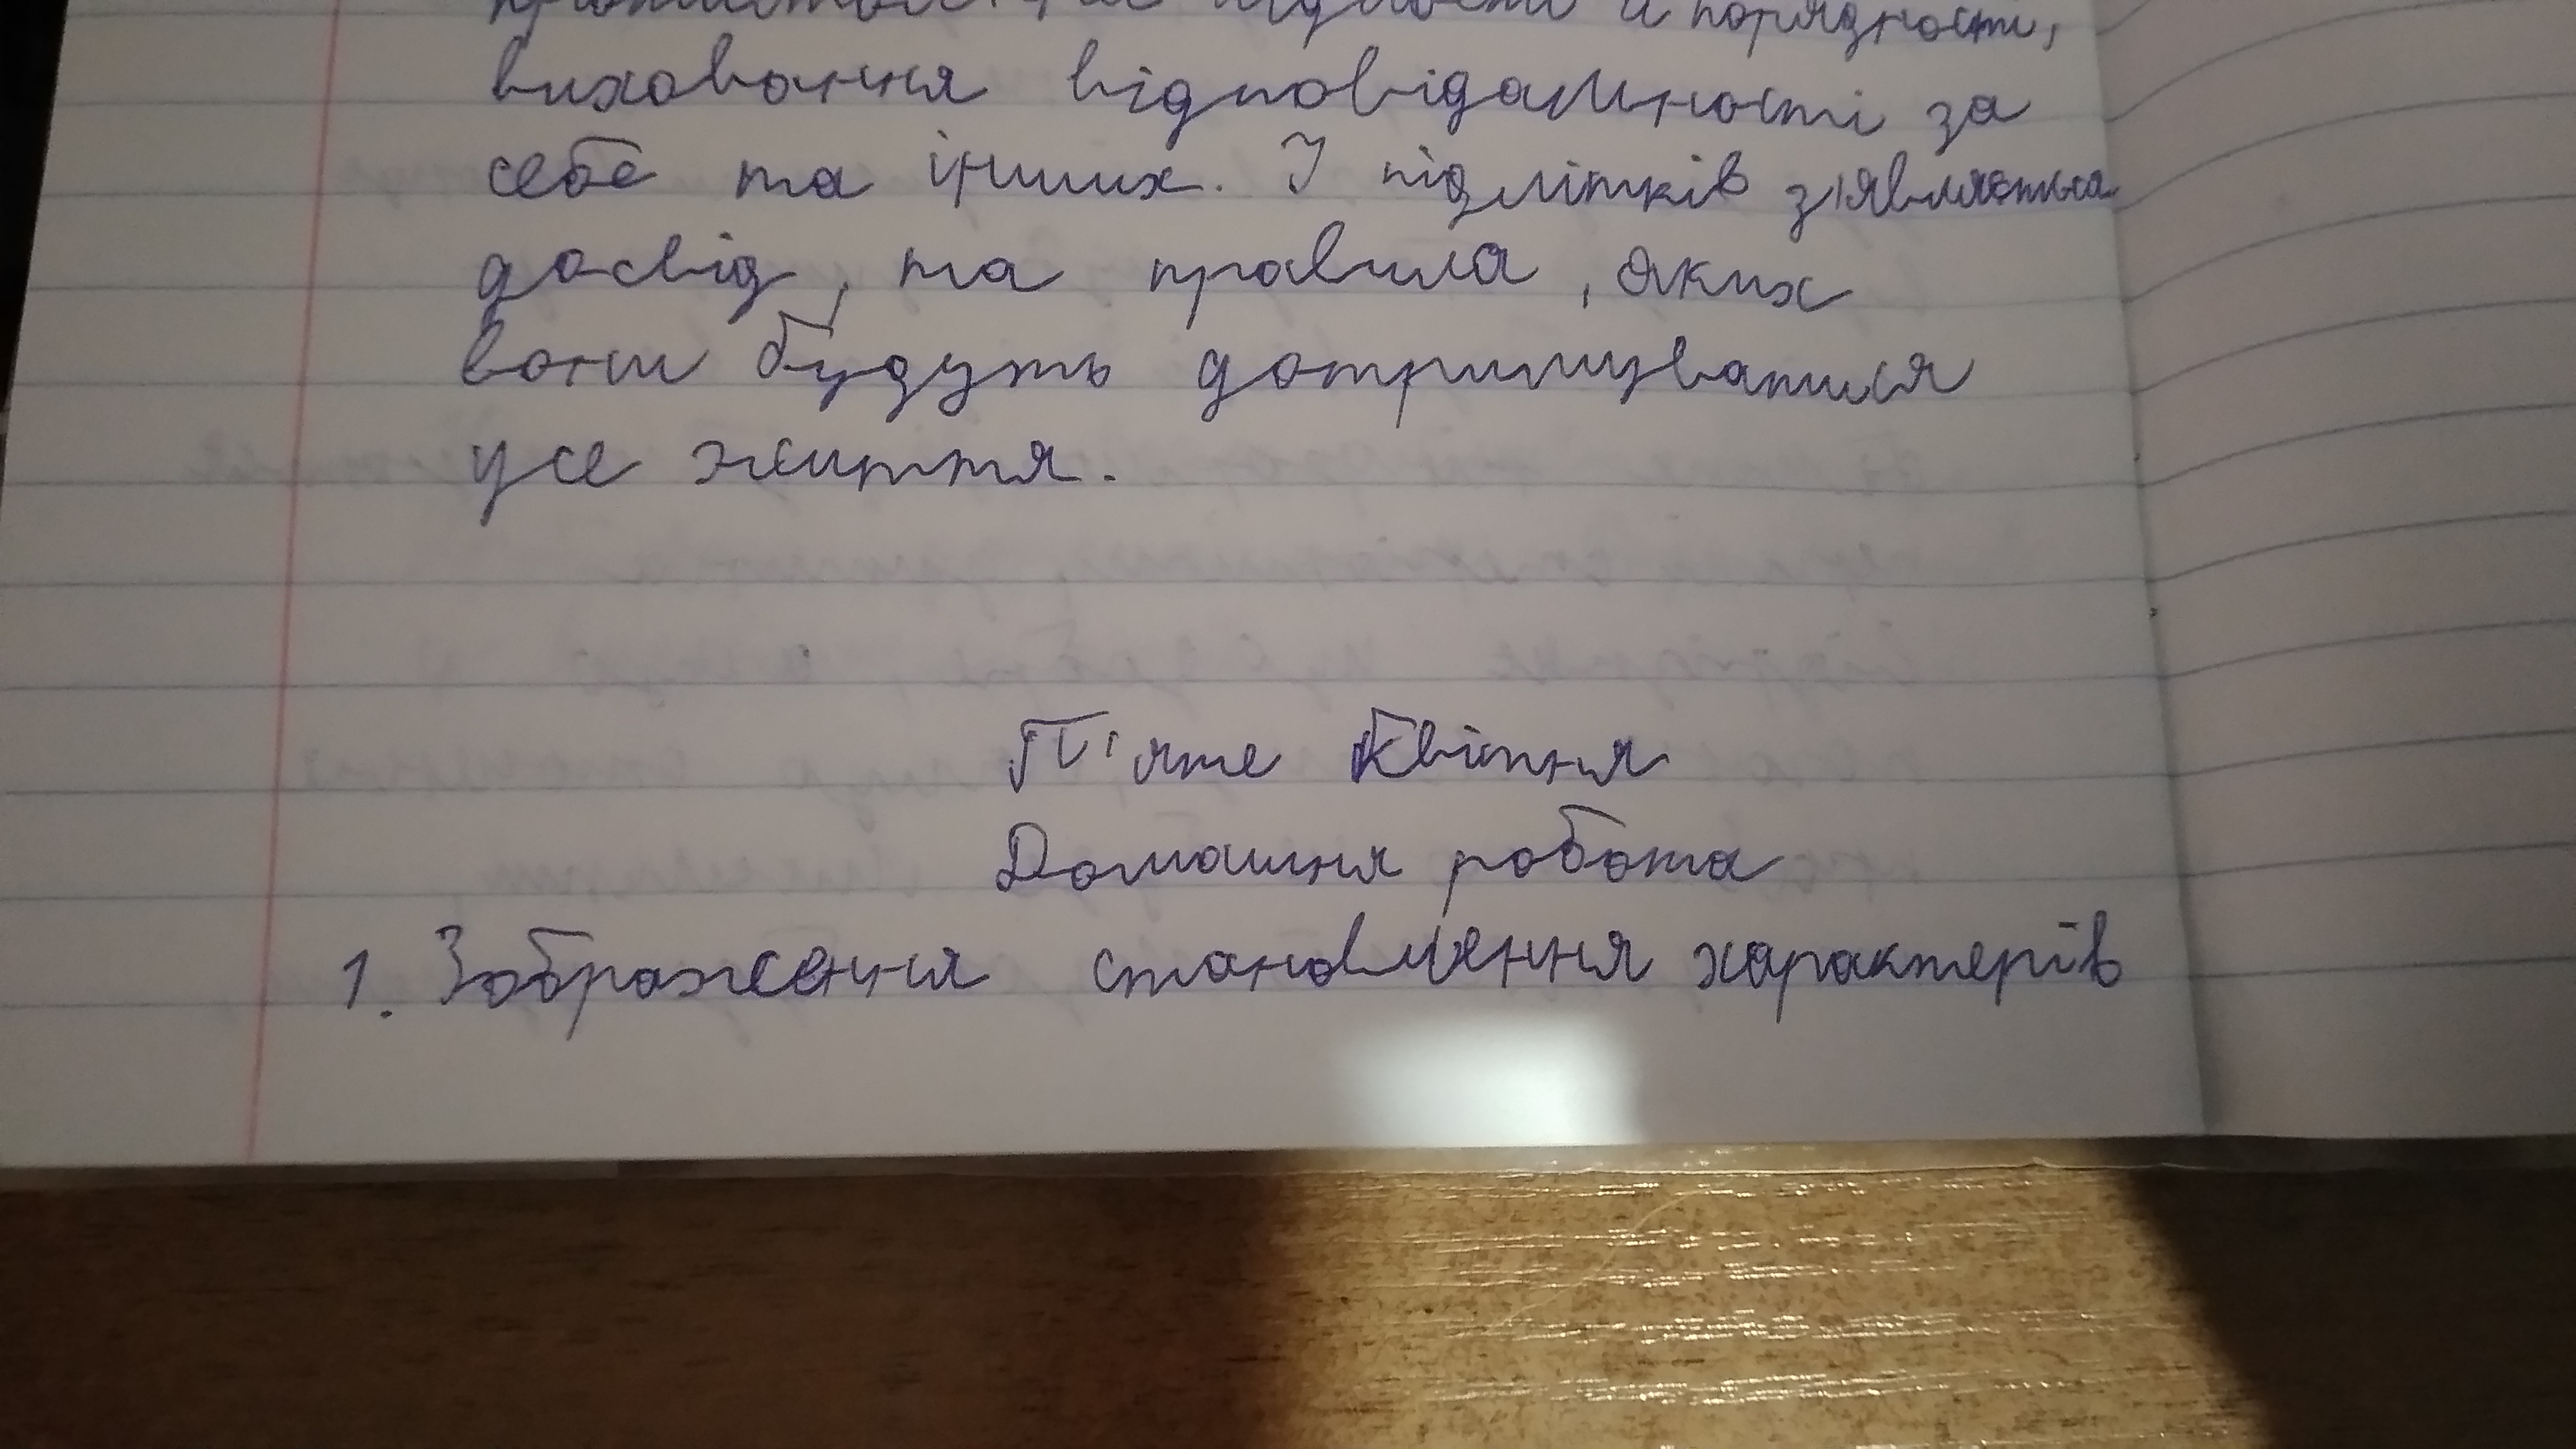 й порядности,
виховання відповідальності за
себе та інших. У підлітків з'являється
досвід, та правила, яких
вони будуть дотримуватися
усе життя.
П'яте Квітня
Домашня робота
1. Зображення становлення характерів